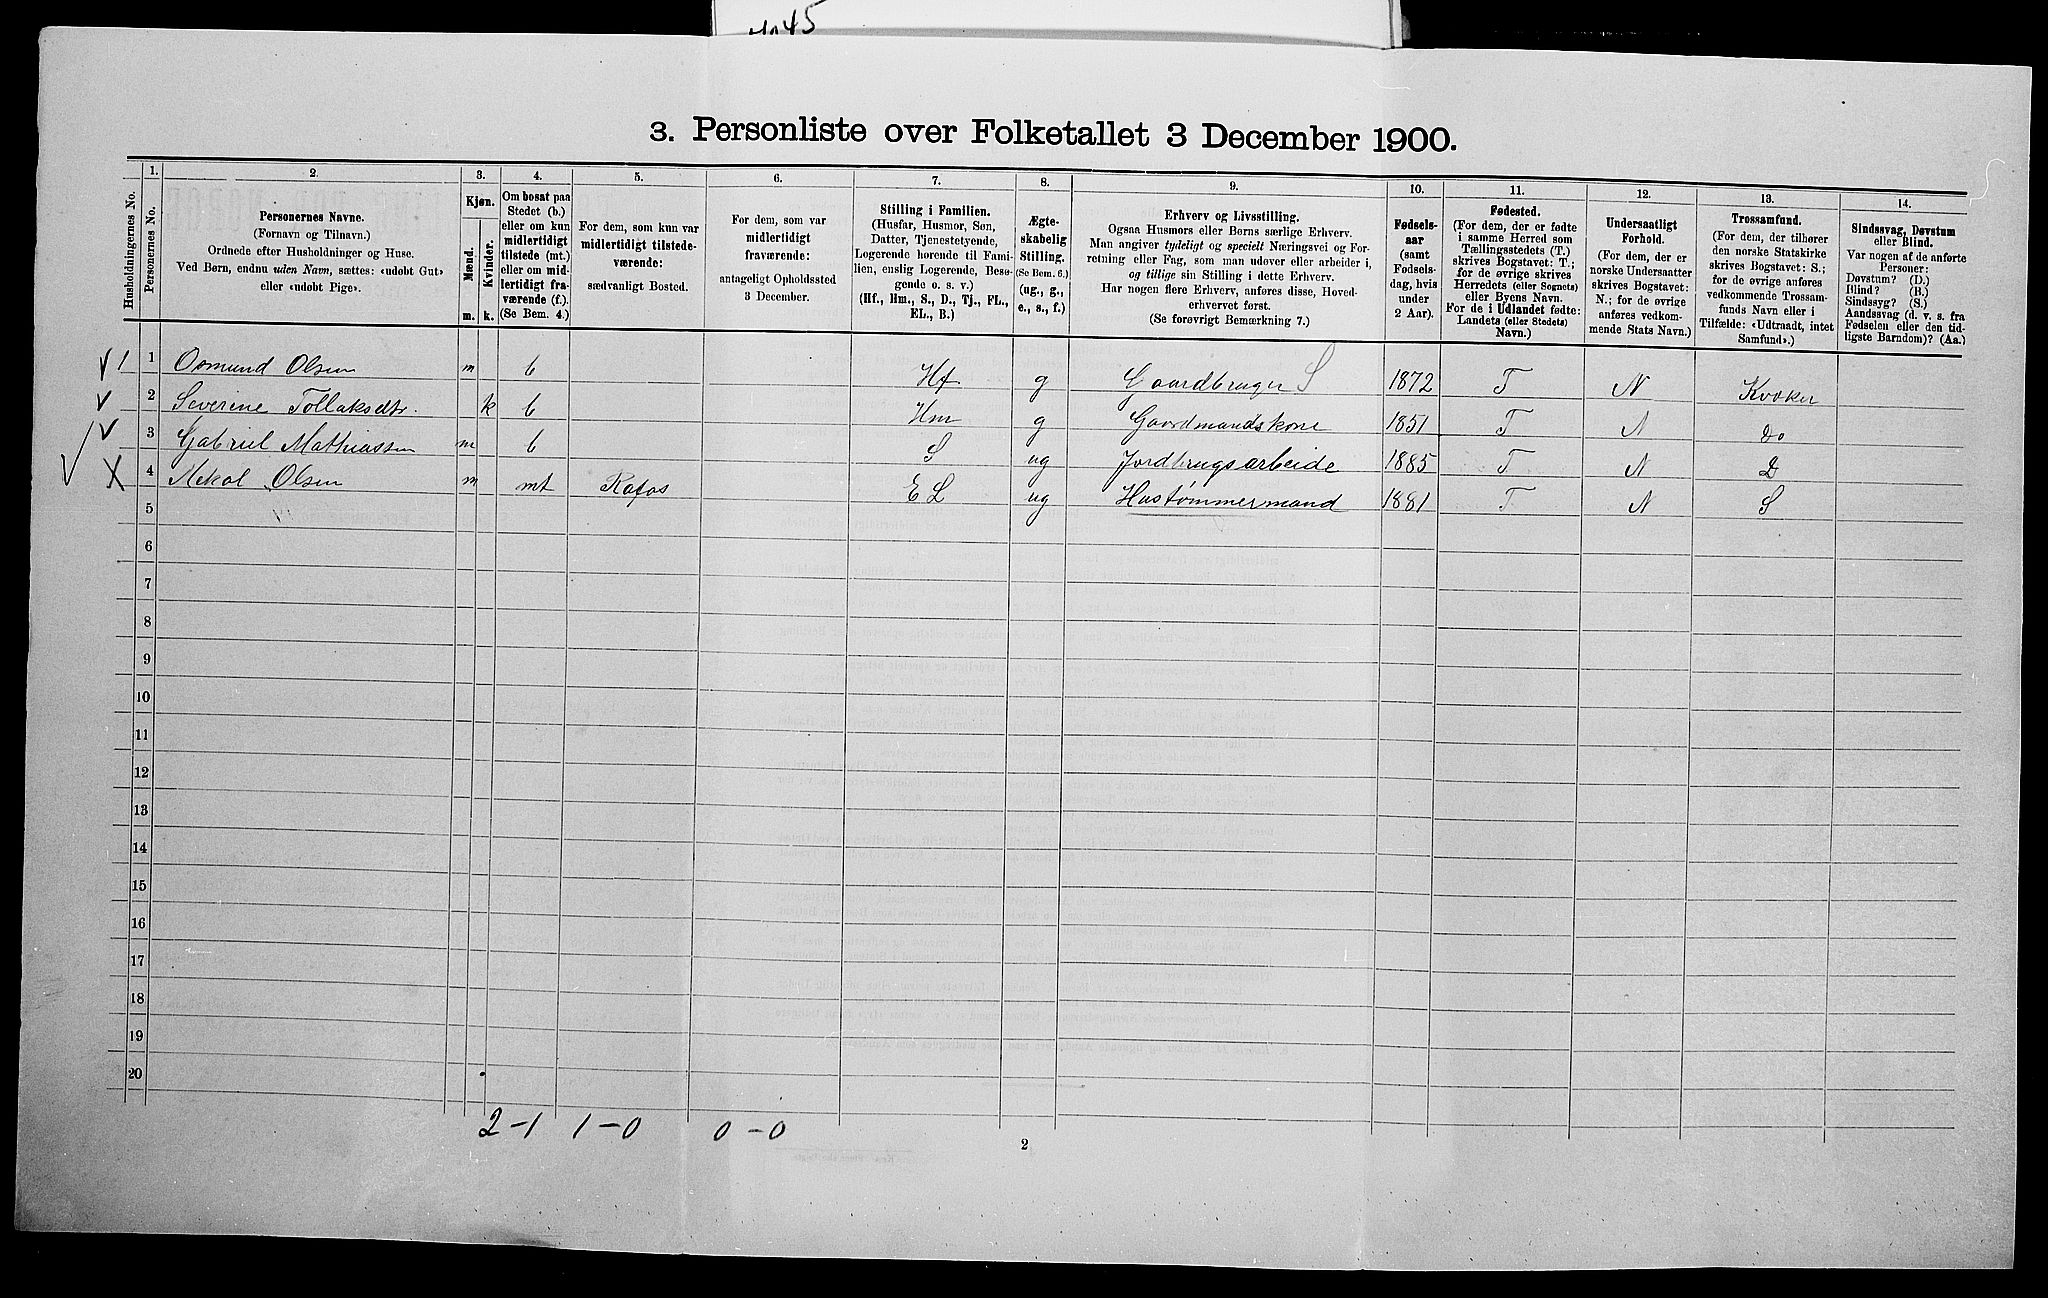 4045
3. Personliste over Folketallet 3 December 1900.
Husholdningernes No.
1.
Personernes No.
2.
Personernes Navne.
(Fornavn og Tilnavn.)
Ordnede efter Husholdninger og Huse.
Ved Børn, endnu uden Navn, sættes: «udøbt Gut»
eller «udøbt Pige».
3.
Kjøn.
Mænd.
Kvinder.
m. k.
4.
Om bosat paa
Stedet (b.)
eller om kun
midlertidigt
tilstede (mt.)
eller om mid-
lertidigt fra-
værende (f.).
(Se Bem. 4.)
5.
For dem, som kun var
midlertidigt tilstede-
værende:
sædvanligt Bosted.
6.
For dem, som var
midlertidigt
fraværende:
antageligt Opholdssted
3 December.
7.
Stilling i Familien.
(Husfar, Husmor, Søn,
Datter, Tjenestetyende,
Logerende hørende til Fami-
lien, enslig Logerende, Besø-
gende o. s. v.)
(Hf., Hm., S., D., Tj., FL.,
EL., B.)
8.
Ægte-
skabelig
Stilling.
(Se Bem. 6.)
(ug., g.,
e., s., f.)
9.
Erhverv og Livsstilling.
Ogsaa Husmors eller Børns særlige Erhverv.
Man angiver tydeligt og specielt Næringsvei og For-
retning eller Fag, som man udøver eller arbeider i,
og tillige sin Stilling i dette Erhverv.
Har nogen flere Erhverv, anføres disse, Hoved-
erhvervet først.
(Se forøvrigt Bemærkning 7.)
10.
Fødsels-
aar
(samt
Fødsels-
dag, hvis
under
2 Aar).
11.
Fødested.
(For dem, der er fødte
i samme Herred som
Tællingsstedets (T.)
skrives Bogstavet: T.;
for de øvrige skrives
Herredets (eller Sognets)
eller Byens Navn.
For de i Udlandet fødte:
Landets (eller Stedets)
Navn.)
12.
Undersaatligt
Forhold.
(For dem, der er
norske Undersaatter
skrives Bogstavet:
N.; for de øvrige
anføres vedkom-
mende Stats Navn.)
13.
Trossamfund.
(For dem, der tilhører
den norske Statskirke
skrives Bogstavet: S.;
for de øvrige anføres
vedkommende Trossam-
funds Navn eller i
Tilfælde: «Udtraadt, intet
Samfund».)
14.
Sindssvag, Døvstum
eller Blind.
Var nogen af de anførte
Personer:
Døvstum? (D.)
Blind? (B.)
Sindssyg? (S.)
Aandssvag (d. v. s. fra
Fødselen eller den tid-
ligste Barndom)? (Aa.)
1 1 Osmund Olsen m b Hf g Gaardbruger S 1872 T N Kvæker
2 Severine Tollaksdtr. k b Hm g Gaardmandskone 1851 T N Do
3 Gabriel Mathiassen m b S ug Jordbrugsarbeide 1885 T N D
4 Mikal Olsen m mt Rafos EL ug Hustømmermand 1881 T N S
5
6
7
8
9
10
11
12
13
14
15
16
17
18
19
20
2-1 1-0 0-0
2